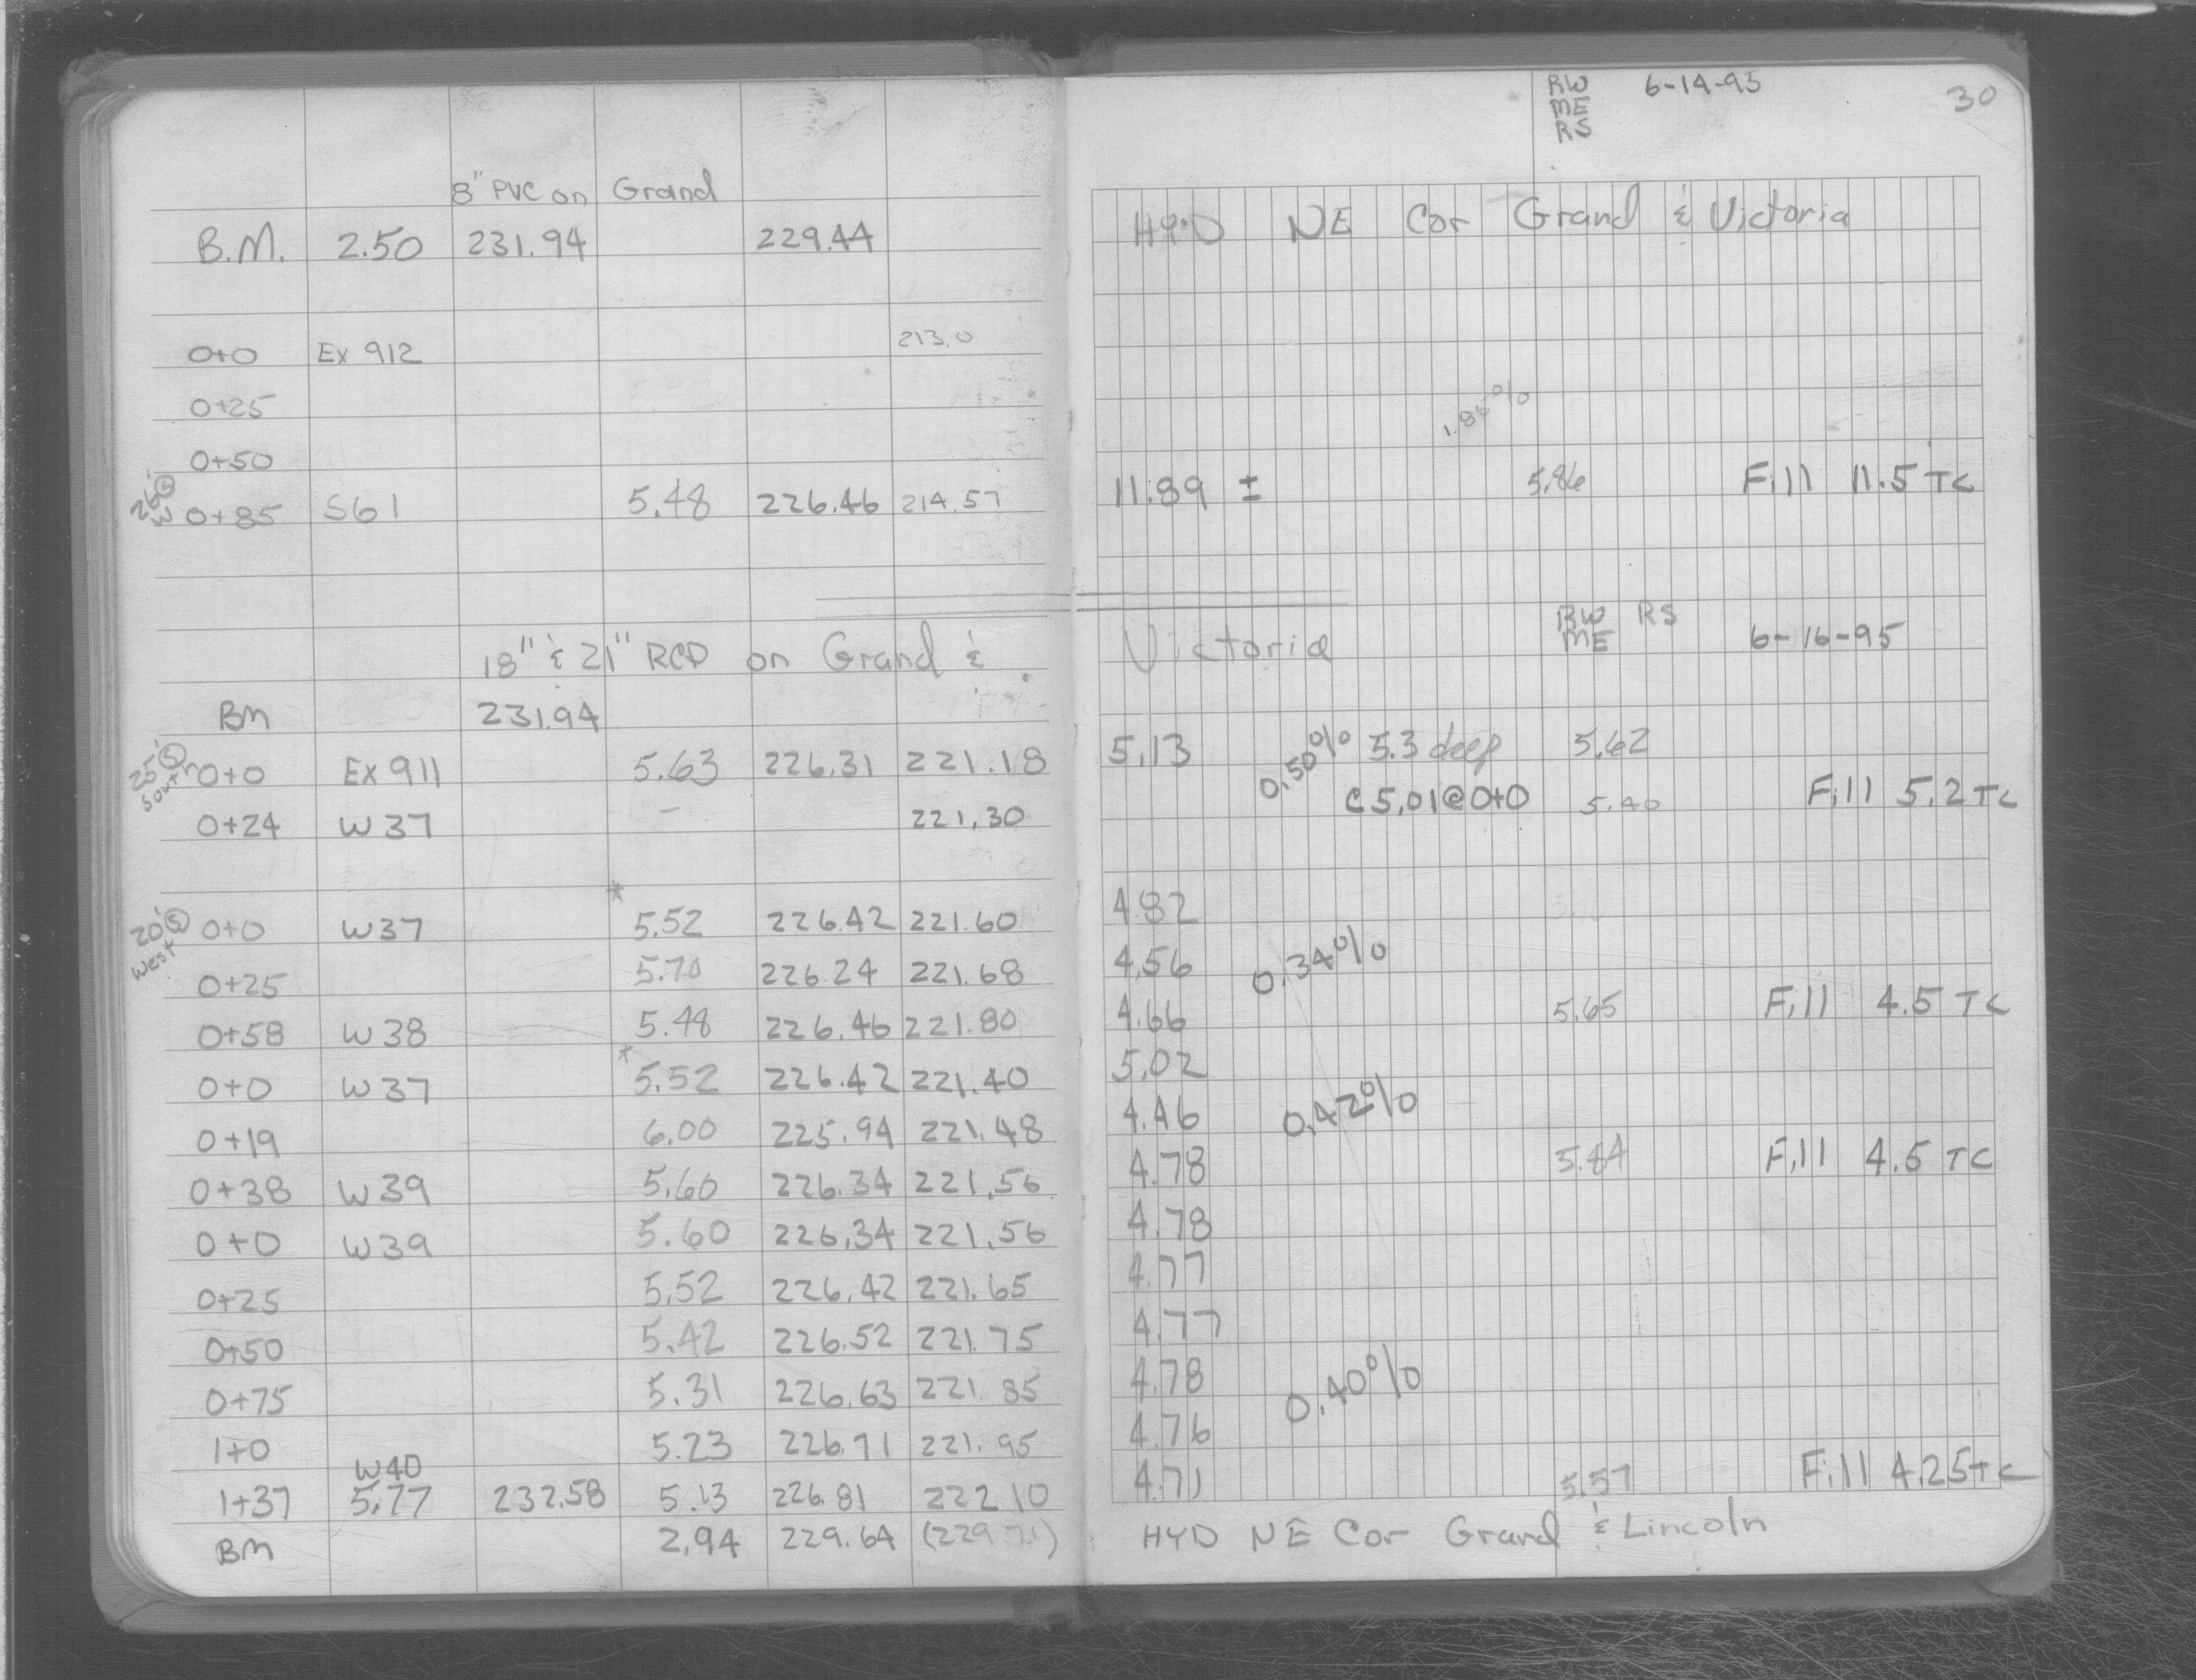 RW 6-14-95 30
ME
RS
8" PVC on Grand
B.M. 2.50 231.94 229.44 HYD NE Cor Grand & Victoria
0+0 Ex 912 213.0
0+25
1.86%
0+50
26' Ⓢ W 0+85 S61 5.48 226.46 214.57 11.89 ± 5.86 Fill 11.5 TC
18" & 21" RCP on Grand & Victoria RW RS 6-16-95
ME
BM 231.94
25' Ⓢ South 0+0 Ex 911 5.63 226.31 221.18 5.13 0.50% 5.3 deep 5.62
0+24 W37 - 221.30 C 5.01@0+0 5.40 Fill 5.2 TC
20' Ⓢ West 0+0 W37 * 5.52 226.42 221.60 4.82
0+25 5.70 226.24 221.68 4.56 0.34%
0+58 W38 5.48 226.46 221.80 4.66 5.65 Fill 4.5 TC
0+0 W37 * 5.52 226.42 221.40 5.02
0+19 6.00 225.94 221.48 4.46 0.42%
0+38 W39 5.60 226.34 221.56 4.78 5.84 Fill 4.5 TC
0+0 W39 5.60 226.34 221.56 4.78
0+25 5.52 226.42 221.65 4.77
0+50 5.42 226.52 221.75 4.77
0+75 5.31 226.63 221.85 4.78 0.40%
1+0 5.23 226.71 221.95 4.76
W40
1+37 5.77 232.58 5.13 226.81 222.10 4.71 5.57 Fill 4.25 TC
BM 2.94 229.64 (229.71) HYD NE Cor Grand & Lincoln